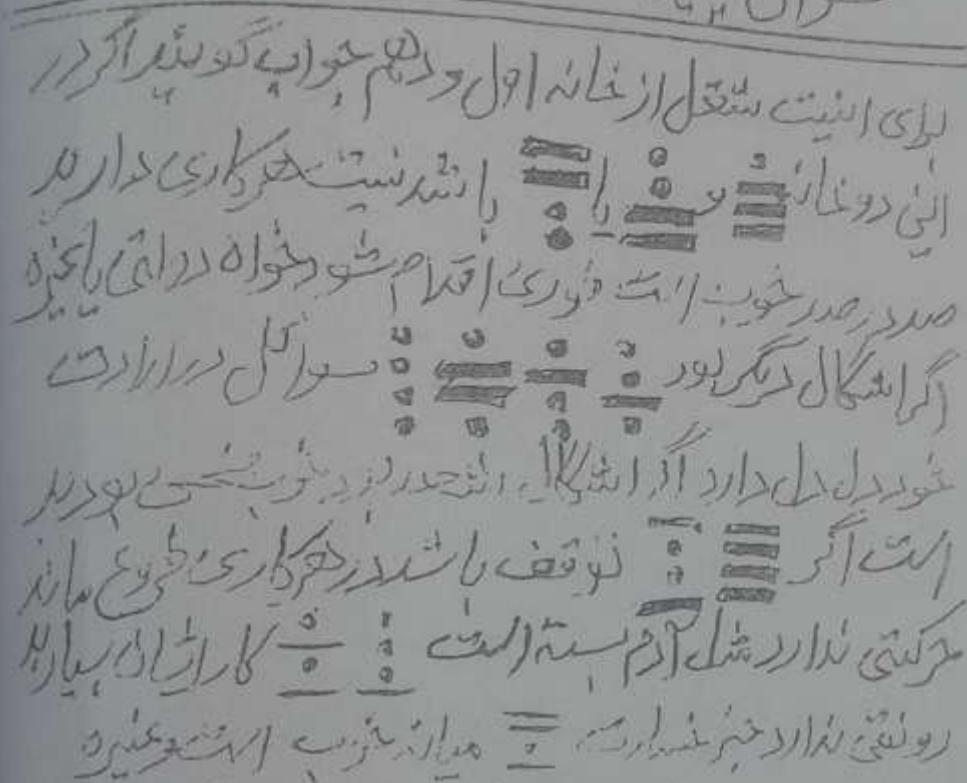 برای نیت شغل از خانه اول و دهم جواب گویید اگر در
این دو خانه و یا باشد نیت هر کاری دارید
صد در صد خوب است فوری اقدام شود خواه زراعتی یا غیره
اگر اشکال دیگر بود سوال در ارادت
خود دل دل دارد اگر اشکال
است اگر توقف باشد در هر کاری شروع ماند
حرکتی ندارد مثل آدم بسته است کار ایشان بسیار بد
رونقی ندارد جز خسارت میانه خوب است و غیره